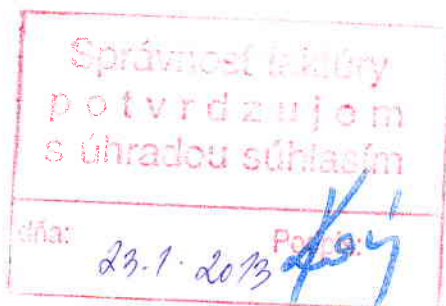 Správnosť faktúry
potvrdzujom
s úhradou súhlasím
dňa: 23.1.2013 Podpis: